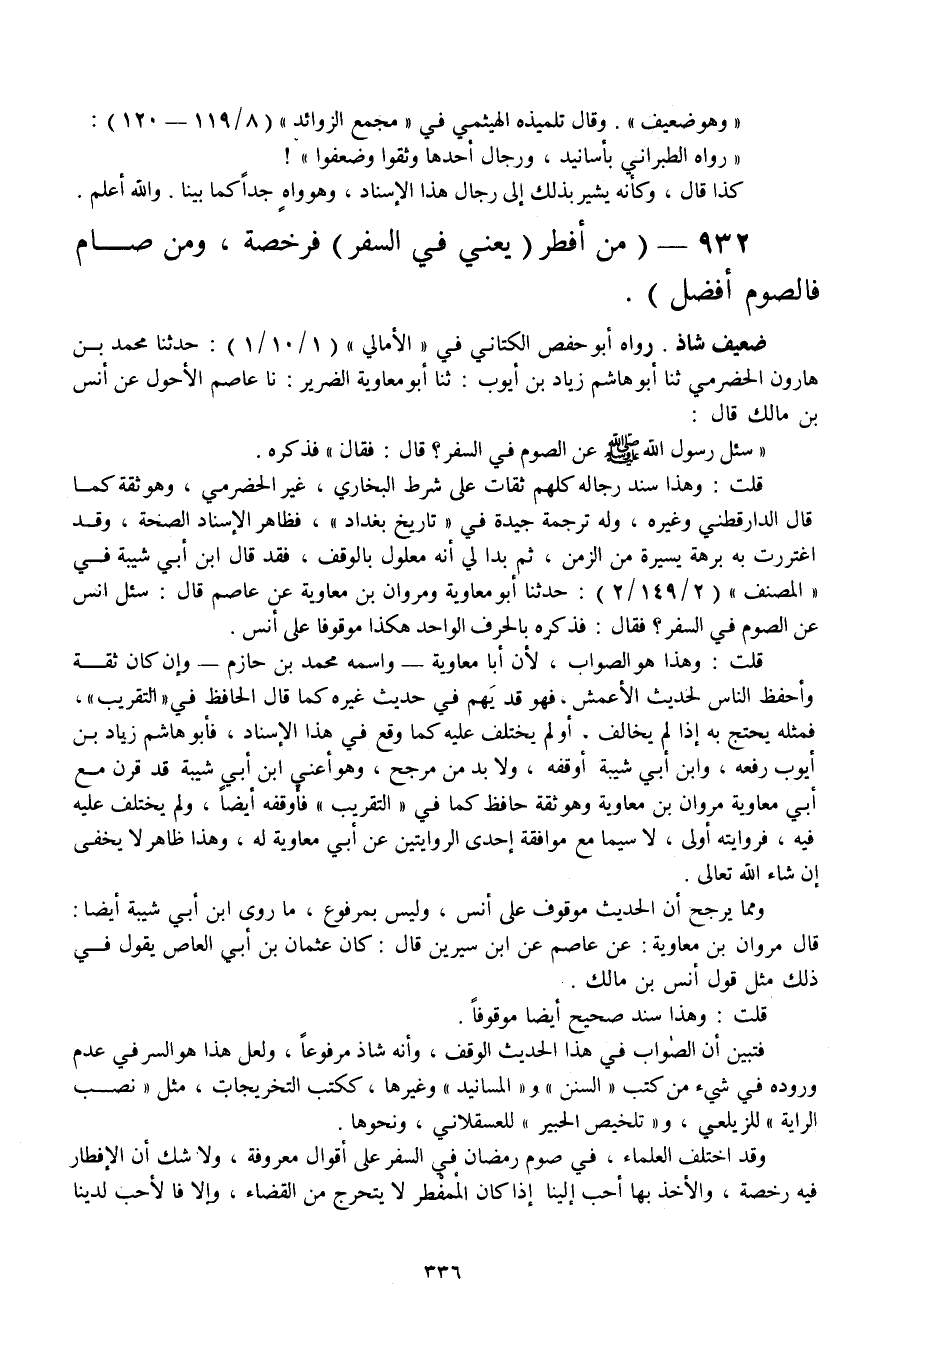 « وهو ضعيف » . وقال تلميذه الهيثمي في « مجمع الزوائد » ( ٨/ ١١٩ — ١٢٠ ) :
« رواه الطبراني بأسانيد ، ورجال أحدها وثقوا وضعفوا » !
كذا قال ، وكأنه يشير بذلك إلى رجال هذا الإسناد ، وهو واهٍ جداً كما بينا . والله أعلم .
٩٣٢ — ( من أفطر ( يعني في السفر ) فرخصة ، ومن صـــام
فالصوم أفضل ) .
ضعيف شاذ . رواه أبو حفص الكتاني في « الأمالي » ( ١/ ١٠/ ١ ) : حدثنا محمد بـن
هارون الحضرمي ثنا أبو هاشم زياد بن أيوب : ثنا أبو معاوية الضرير : نا عاصم الأحول عن أنس
بن مالك قال :
« سئل رسول الله ﷺ عن الصوم في السفر ؟ قال : فقال » فذكره .
قلت : وهذا سند رجاله كلهم ثقات على شرط البخاري ، غير الحضرمي ، وهو ثقة كمـا
قال الدارقطني وغيره ، وله ترجمة جيدة في « تاريخ بغداد » ، فظاهر الإسناد الصحة ، وقـد
اغتررت به برهة يسيرة من الزمن ، ثم بدا لي أنه معلول بالوقف ، فقد قال ابن أبي شيبة فـي
« المصنف » ( ٢/ ١٤٩/ ٢ ) : حدثنا أبو معاوية ومروان بن معاوية عن عاصم قال : سئل انس
عن الصوم في السفر ؟ فقال : فذكره بالحرف الواحد هكذا موقوفا على أنس .
قلت : وهذا هو الصواب ، لأن أبا معاوية — واسمه محمد بن حازم — وإن كان ثقـة
وأحفظ الناس لحديث الأعمش . فهو قد يَهم في حديث غيره كما قال الحافظ في « التقريب » ،
فمثله يحتج به إذا لم يخالف . أو لم يختلف عليه كما وقع في هذا الإسناد ، فأبو هاشم زياد بـن
أيوب رفعه ، وابن أبي شيبة أوقفه ، ولا بد من مرجح ، وهو أعني ابن أبي شيبة قد قرن مـع
أبي معاوية مروان بن معاوية وهو ثقة حافظ كما في « التقريب » فأوقفه أيضاً ، ولم يختلف عليه
فيه ، فروايته أولى ، لا سيما مع موافقة إحدى الروايتين عن أبي معاوية له ، وهذا ظاهر لا يخفـى
إن شاء الله تعالى .
ومما يرجح أن الحديث موقوف على أنس ، وليس بمرفوع ، ما روى ابن أبي شيبة أيضا :
قال مروان بن معاوية : عن عاصم عن ابن سيرين قال : كان عثمان بن أبي العاص يقول فـي
ذلك مثل قول أنس بن مالك .
قلت : وهذا سند صحيح أيضا موقوفاً .
فتبين أن الصواب في هذا الحديث الوقف ، وأنه شاذ مرفوعاً ، ولعل هذا هو السر في عدم
وروده في شيء من كتب « السنن » و « المسانيد » وغيرها ، ككتب التخريجات ، مثل « نصـب
الراية » للزيلعي ، و « تلخيص الحبير » للعسقلاني ، ونحوها .
وقد اختلف العلماء ، في صوم رمضان في السفر على أقوال معروفة ، ولا شك أن الإفطار
فيه رخصة ، والأخذ بها أحب إلينا إذا كان المُفطر لا يتحرج من القضاء ، وإلا فا لأحب لدينا
٣٣٦